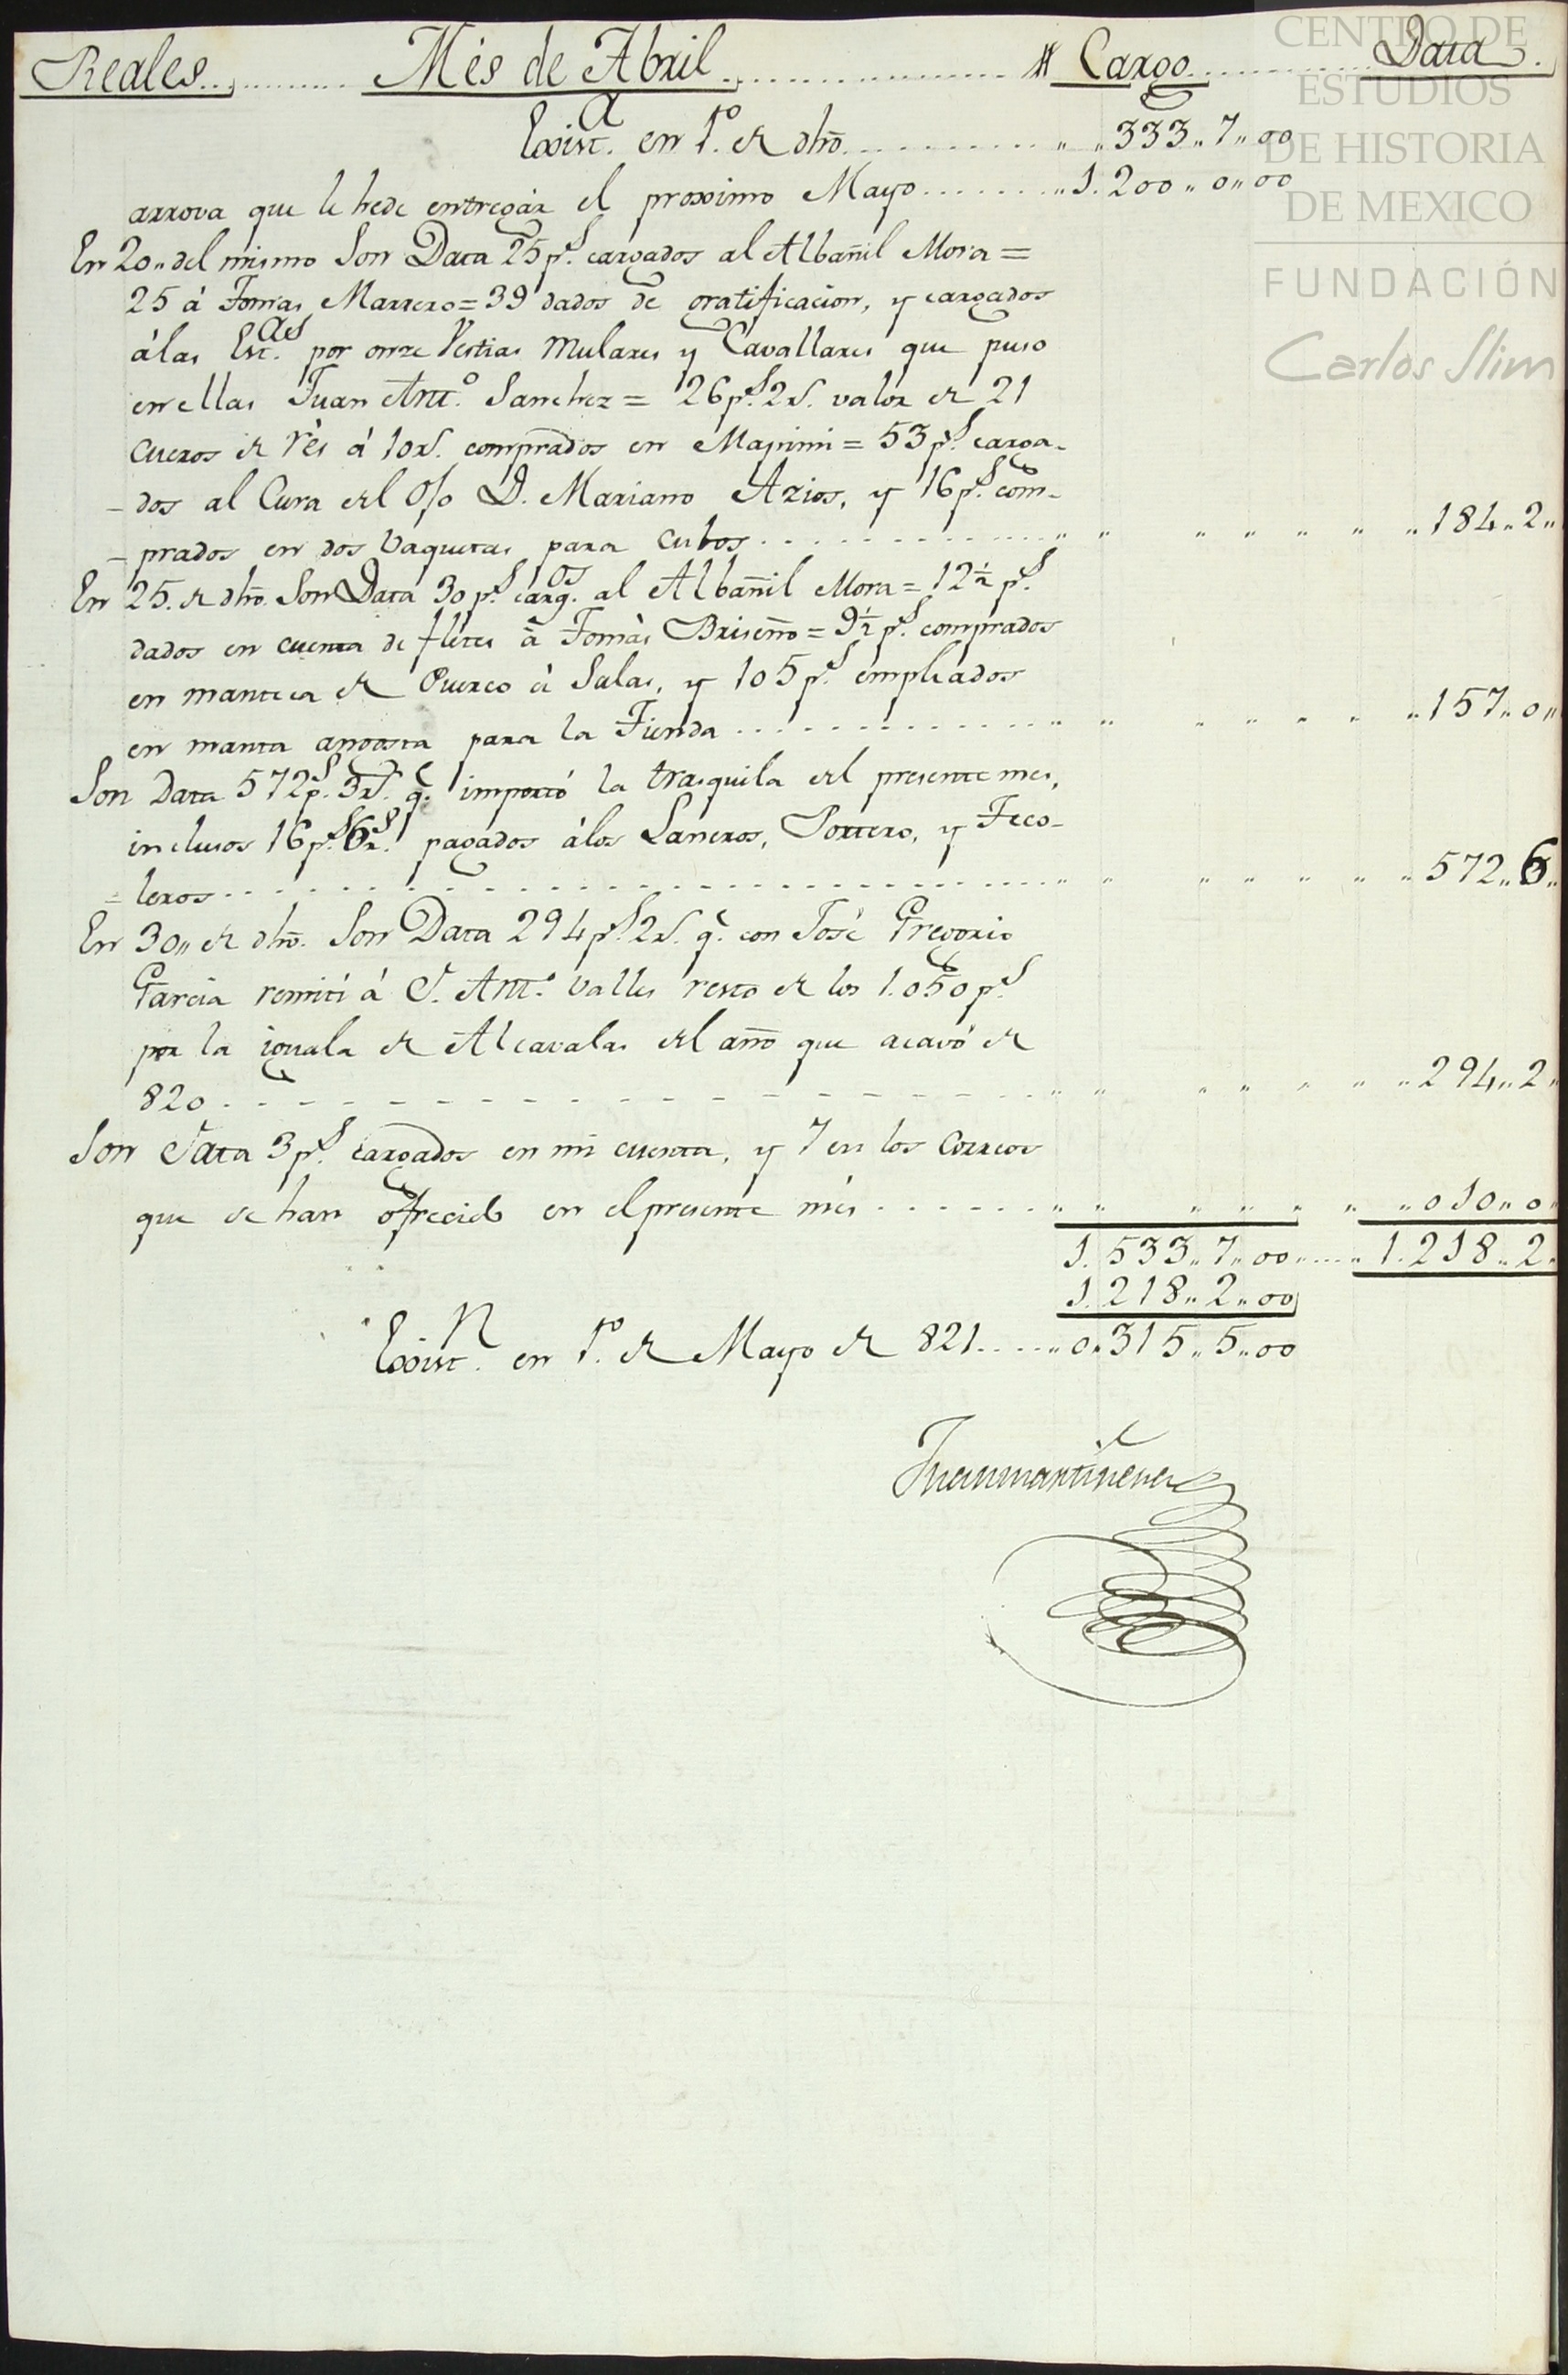 Reales........... Mes de Abril.................. # Cargo............ Data.
Exist.ª en 1.º de dho............ „ „ 333„ 7„ 00
arrova que le hede entregar el proximo Mayo........ „ 1. 200„ 0„ 00
En 20„ del mismo Son Data 25 p.s cargados al Albañil Mora =
25 á Tomas Marrero = 39 dados de gratificacion, y cargados
álas Est.as por onze Vestias Mulares y Cavallares que puso
en ellas Juan Ant.º Sanchez = 26 p.s 2 r.s valor de 21
cueros de rès á 10 r.s comprados en Mapimi = 53 p.s carga-
-dos al Cura del O/o D. Mariano Arios, y 16 p.s com-
-prados en dos Vaquetas para cubos.............. „ „ „ „ „ „ „ 184„ 2„
En 25. de dho. Son Data 30 p.s carg.os al Albañil Mora = 12 1/2 p.s
dados en cuenta de fletes á Tomàs Briseño = 9 1/2 p.s comprados
en manteca de Puerco á Salas, y 105 p.s empleados
en manta angosta para la Tienda.............. „ „ „ „ „ „ „ 157„ 0„
Son Data 572 p.s 3 r.s q.e importó la trasquila del presente mes,
inclusos 16 p.s 6 r.s pagados álos Laneros, Portero, y Teco-
=leros.............................. „ „ „ „ „ „ „ 572„ 6„
En 30„ de dho. Son Data 294 p.s 2 r.s q.e con José Gregorio
Garcia remití á D. Ant.º Valles resto de los 1.050 p.s
por la iguala de Alcavalas del año que acavó de
820.................. „ „ „ „ „ „ „ 294„ 2„
Son Data 3 p.s cargados en mi cuenta, y 7 en los Correos
que se han ofrecido en el presente mès....... „ „ „ „ „ „ „ 010„ 0„
1. 533„ 7„ 00„.....„ 1. 218„ 2„
1. 218„ 2„ 00
Exist.n en 1.º de Mayo de 821.....„ 0„ 315„ 5„ 00
CENTRO DE
ESTUDIOS
DE HISTORIA
DE MEXICO
FUNDACIÓN
Carlos Slim